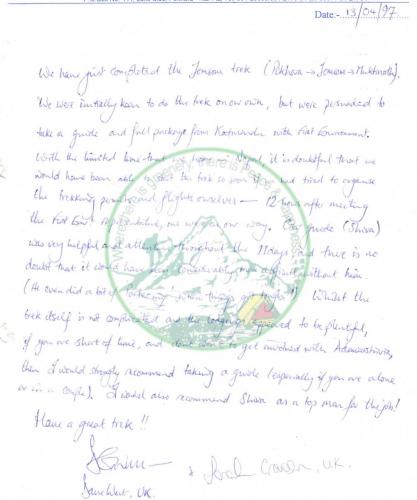 Date:- 13/04/97
We have just completed the Jomsom trek (Pokhara → Jomsom → Muktinath).
We were initially keen to do the trek on our own, but were persuaded to
take a guide and full package from Katmandu with First Environment.
With the limited time that we have in Nepal, it is doubtful that we
would have been able to start the trek so soon if we had tried to organise
the trekking permits and flights ourselves — 12 hours after meeting
the First Env. representative, we were on our way. Our guide (Shiva)
was very helpful and attentive throughout the 11 days and there is no
doubt that it would have been considerably more difficult without him.
(He even did a bit of 'portering' when things got tough!!) Whilst the
trek itself is not complicated and the lodges appeared to be plentiful,
if you are short of time, and don't want to get involved with Administration,
then I would strongly recommend taking a guide (especially if you are alone
or in a couple). I would also recommend Shiva as a top man for the job!
Have a great trek !!
Where there is green there is peace & happiness
Dave West, UK.
& Sarah UK.